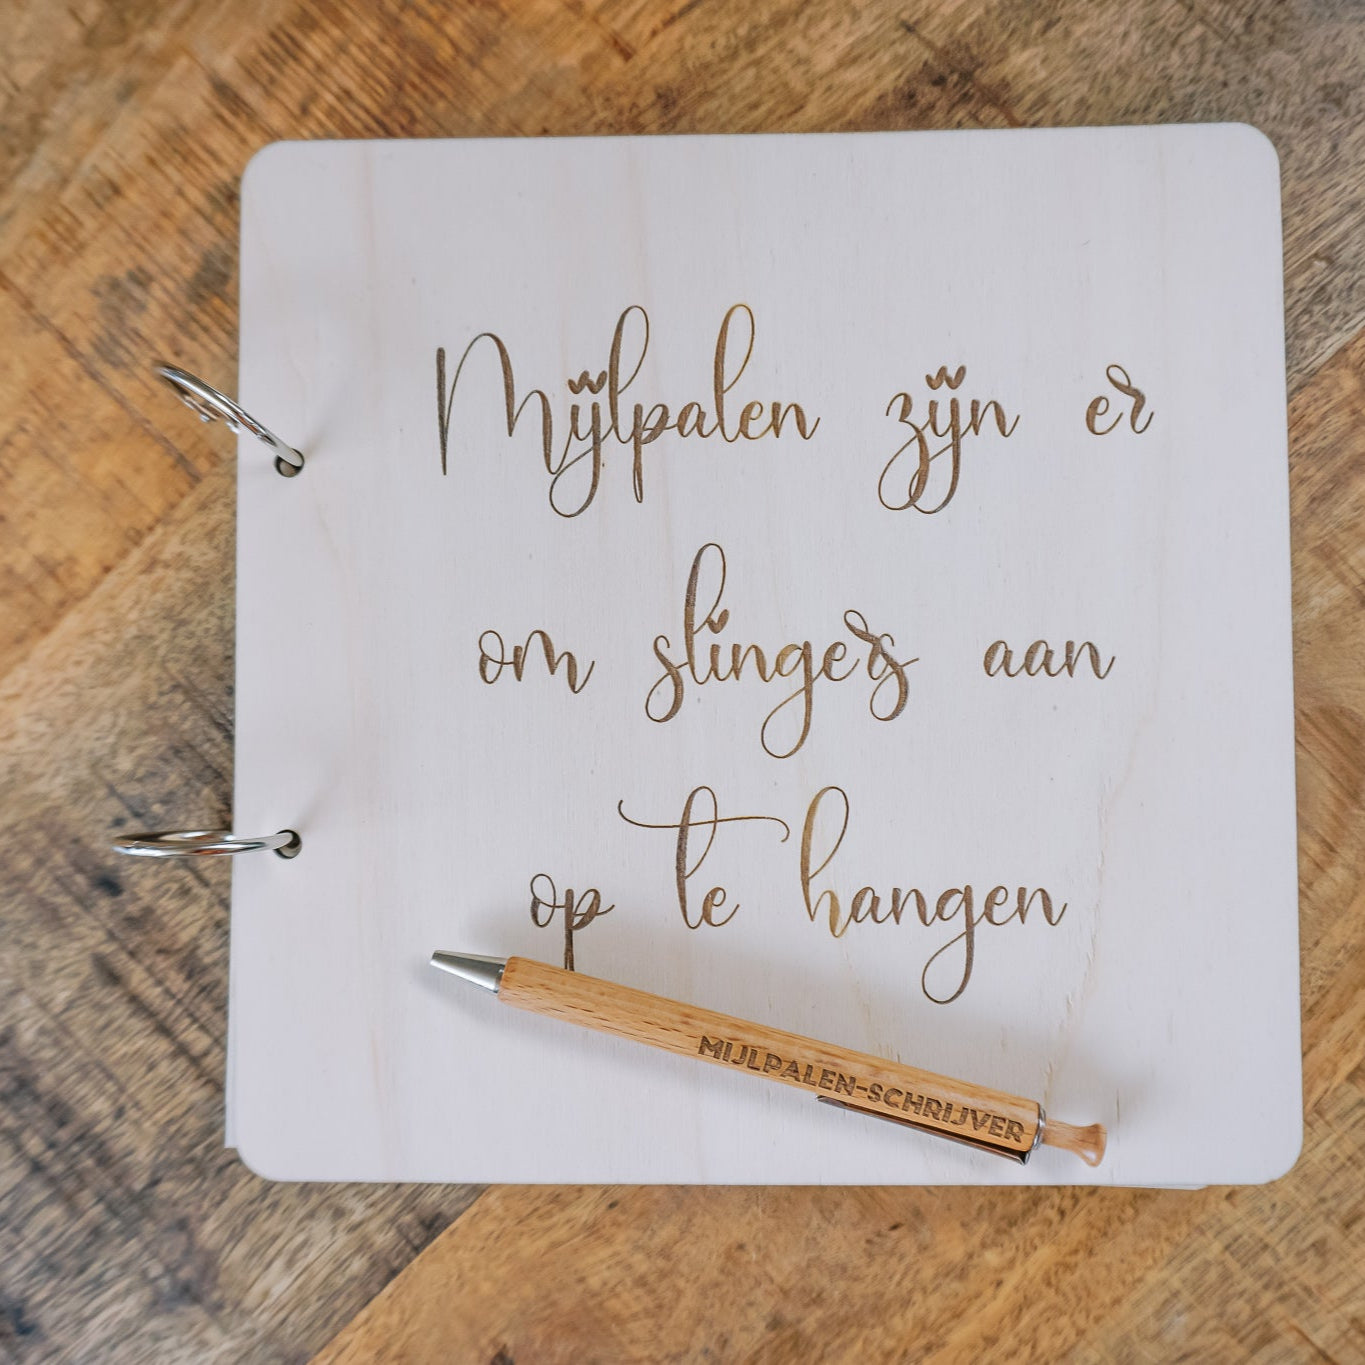 Mijlpalen zijn er
om slingers aan
op te hangen
MIJLPALEN-SCHRIJVER